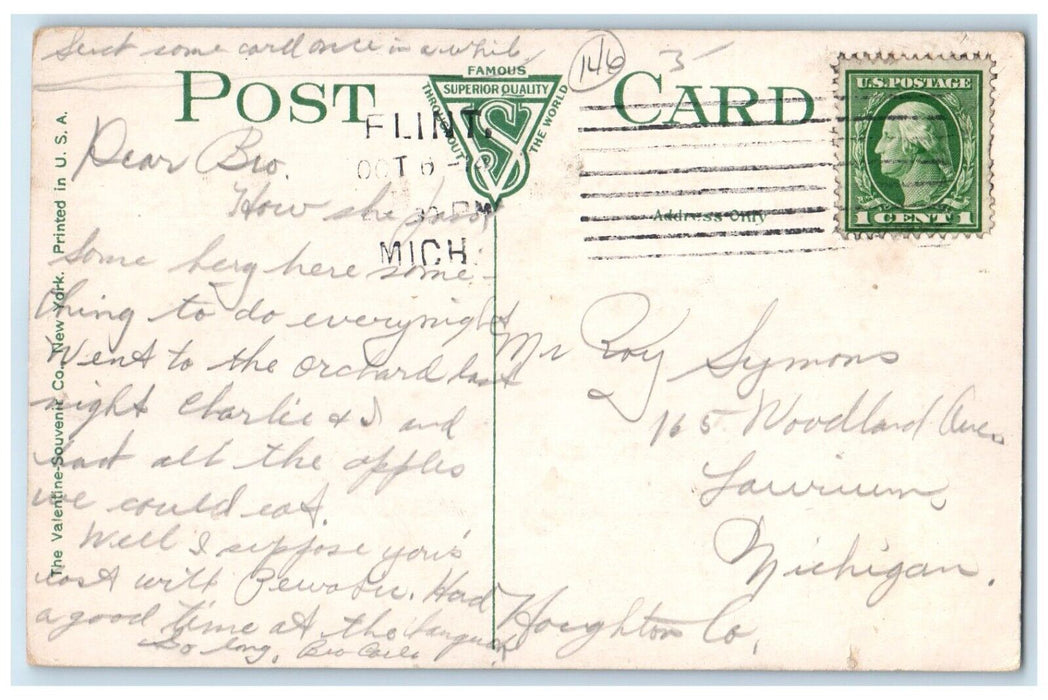 Send some card once in a while
146
POST CARD
FAMOUS
SUPERIOR QUALITY
THROUGHOUT
THE WORLD
U.S. POSTAGE
1 CENT 1
FLINT,
OCT 6
PM
MICH.
Address Only
The Valentine-Souvenir Co., New York. Printed in U. S. A.
Dear Bro.
How she
Some here some-
thing to do everynight
Went to the orchard last
night Charlie & I and
had all the apples
we could eat.
Well I suppose your's
with Had
a good time at the banquet
So long, Bro
Mr Roy Symons
165 Woodland Ave,
Laurium,
Michigan.
Houghton Co,